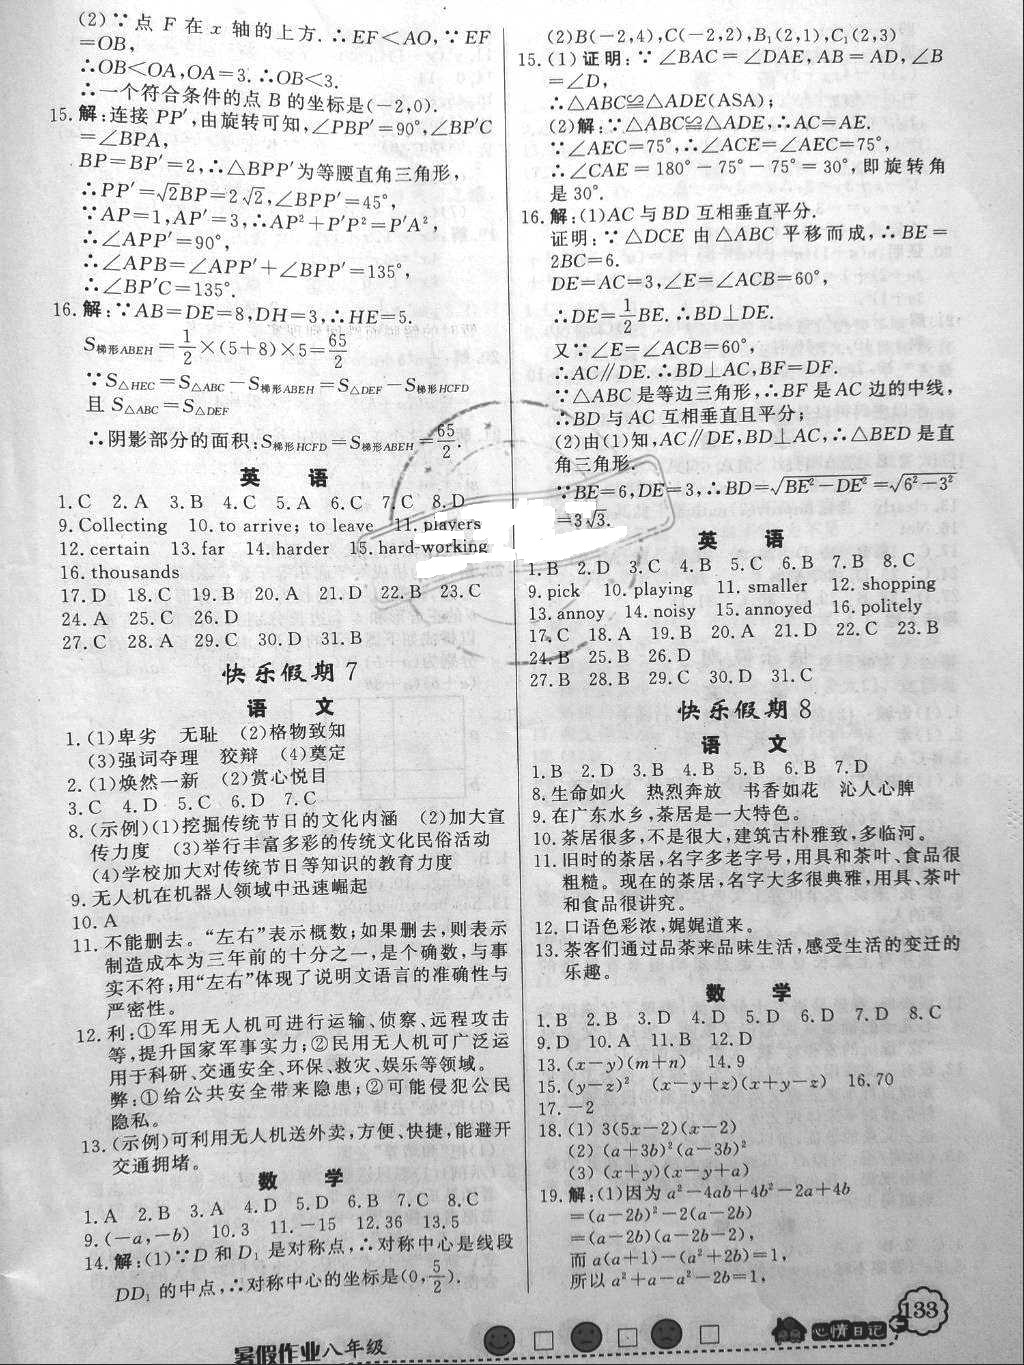 (2)∵点 F 在 x 轴的上方.∴EF<AO,∵EF
=OB,
∴OB<OA,OA=3.∴OB<3.
∴一个符合条件的点 B 的坐标是(-2,0).
15.解:连接 PP′,由旋转可知,∠PBP′=90°,∠BP′C
=∠BPA,
BP=BP′=2,∴△BPP′为等腰直角三角形,
∴PP′=√2BP=2√2,∠BPP′=45°,
∵AP=1,AP′=3,∴AP²+P′P²=P′A²,
∴∠APP′=90°,
∴∠APB=∠APP′+∠BPP′=135°,
∴∠BP′C=135°.
16.解:∵AB=DE=8,DH=3,∴HE=5.
S梯形ABEH=1/2×(5+8)×5=65/2
∵S△HEC=S△ABC-S梯形ABEH=S△DEF-S梯形HCFD
且 S△ABC=S△DEF
∴阴影部分的面积:S梯形HCFD=S梯形ABEH=65/2.
英 语
1.C 2.A 3.B 4.C 5.A 6.C 7.C 8.D
9. Collecting 10. to arrive; to leave 11. players
12. certain 13. far 14. harder 15. hard-working
16. thousands
17.D 18.C 19.C 20.A 21.D 22.B 23.C
24.A 25.C 26.D
27.C 28.A 29.C 30.D 31.B
快乐假期 7
语 文
1.(1)卑劣 无耻 (2)格物致知
(3)强词夺理 狡辩 (4)奠定
2.(1)焕然一新 (2)赏心悦目
3.C 4.D 5.C 6.D 7.C
8.(示例)(1)挖掘传统节日的文化内涵 (2)加大宣
传力度 (3)举行丰富多彩的传统文化民俗活动
(4)学校加大对传统节日等知识的教育力度
9.无人机在机器人领域中迅速崛起
10.A
11.不能删去。“左右”表示概数;如果删去,则表示
制造成本为三年前的十分之一,是个确数,与事
实不符;用“左右”体现了说明文语言的准确性与
严密性。
12.利:①军用无人机可进行运输、侦察、远程攻击
等,提升国家军事实力;②民用无人机可广泛运
用于科研、交通安全、环保、救灾、娱乐等领域。
弊:①给公共安全带来隐患;②可能侵犯公民
隐私。
13.(示例)可利用无人机送外卖,方便、快捷,能避开
交通拥堵。
数 学
1.A 2.B 3.A 4.D 5.D 6.B 7.C 8.C
9.(-a,-b) 10.3 11.-15 12.36 13.5
14.解:(1)∵D 和 D₁ 是对称点,∴对称中心是线段
DD₁ 的中点,∴对称中心的坐标是(0,5/2).
(2)B(-2,4),C(-2,2),B₁(2,1),C₁(2,3)
15.(1)证明:∵∠BAC=∠DAE,AB=AD,∠B
=∠D,
∴△ABC≌△ADE(ASA);
(2)解:∵△ABC≌△ADE,∴AC=AE.
∵∠AEC=75°,∴∠ACE=∠AEC=75°,
∴∠CAE=180°-75°-75°=30°,即旋转角
是30°.
16.解:(1)AC 与 BD 互相垂直平分.
证明:∵△DCE 由△ABC 平移而成,∴BE=
2BC=6.
DE=AC=3,∠E=∠ACB=60°,
∴DE=1/2BE.∴BD⊥DE.
又∵∠E=∠ACB=60°,
∴AC∥DE.∴BD⊥AC,BF=DF.
∵△ABC 是等边三角形,∴BF 是AC 边的中线,
∴BD 与 AC 互相垂直且平分;
(2)由(1)知,AC∥DE,BD⊥AC,∴△BED 是直
角三角形.
∵BE=6,DE=3,∴BD=√(BE²-DE²)=√(6²-3²)
=3√3.
英 语
1.B 2.D 3.C 4.B 5.C 6.B 7.B 8.C
9. pick 10. playing 11. smaller 12. shopping
13. annoy 14. noisy 15. annoyed 16. politely
17.C 18.A 19.B 20.D 21.A 22.C 23.B
24.B 25.B 26.D
27.B 28.B 29.C 30.D 31.C
快乐假期 8
语 文
1.B 2.D 3.B 4.B 5.B 6.B 7.D
8.生命如火 热烈奔放 书香如花 沁人心脾
9.在广东水乡,茶居是一大特色。
10.茶居很多,不是很大,建筑古朴雅致,多临河。
11.旧时的茶居,名字多老字号,用具和茶叶、食品很
粗糙。现在的茶居,名字大多很典雅,用具、茶叶
和食品很讲究。
12.口语色彩浓,娓娓道来。
13.茶客们通过品茶来品味生活,感受生活的变迁的
乐趣。
数 学
1.B 2.B 3.D 4.D 5.D 6.D 7.D 8.C
9.D 10.A 11.B 12.D
13.(x-y)(m+n) 14.9
15.(y-z)² (x-y+z)(x-y-z) 16.70
17.-2
18.(1) 3(5x-2)(x-2)
(2) (a+3b)²(a-3b)²
(3) (x+y)(x-y-a)
19.解:(1)因为 a²-4ab+4b²-2a+4b
=(a-2b)²-2(a-2b)
=(a-2b)(a-2b-2),
而 a(a+1)-(a²+2b)=1,
所以 a²+a-a²-2b=1,
暑假作业八年级
心情日记
133